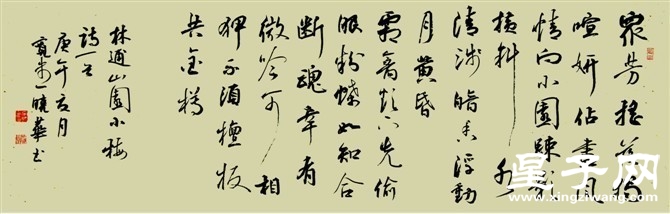 眾芳搖落獨
暄妍佔盡風
情向小園疎影
橫斜水
清淺暗香浮動
月黃昏
霜禽欲下先偷
眼粉蝶如知合
断魂幸有
微吟可相
狎不須檀板
共金樽
林逋山園小梅
詩一首
庚午 月
曉華书
星子网
www.xingziwang.com